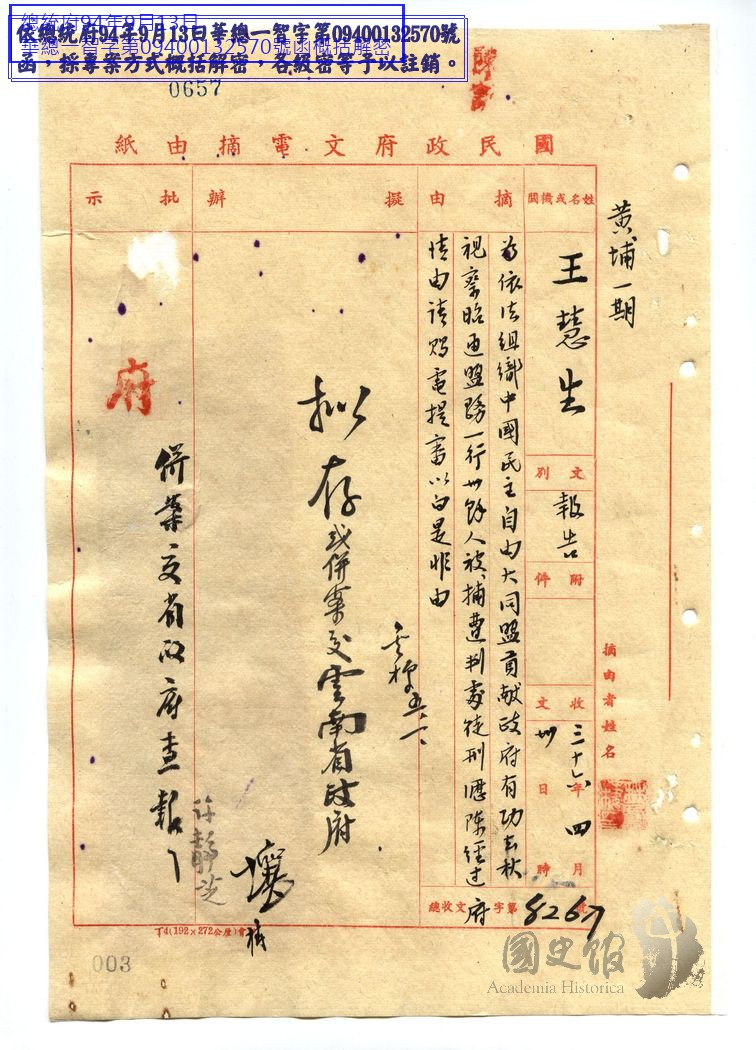 總統府94年9月13日
華總一智字第09400132570號函概括解密
依總統府94年9月13日華總一智字第09400132570號
函,採專案方式概括解密,各級密等予以註銷。
0657
國民政府文電摘由紙
黃埔一期
姓名或機關
王慧生
文別
報告
附件
收文
三十六年四月卅日時
總收文府字第8267號
摘由者姓名
摘由
為依法組織中國民主自由大同盟貢獻政府有功去秋
視察昭通盟務一行卅餘人被捕遭判處徒刑歷陳經過
情由請賜電提審以白是非由
擬辦
擬存或併案交雲南省政府
批示
府
併案交省政府查報
許靜芝
丁4(192×272公厘)
003
國史館
Academia Historica